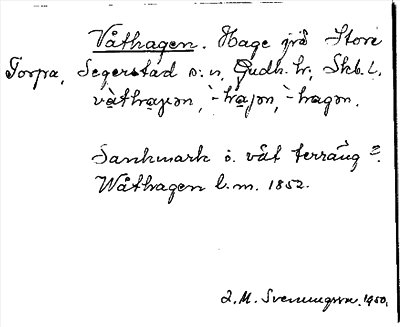 Våthagen. Hage på Store
Torpa, Segerstad s:n, Gudh. hr, Skb. l.
våthaɡən, -haɡən, -hagən.
Sankmark o. våt terräng.
Wåthagen l.m. 1852.
L.M. Svenungsson. 1950.